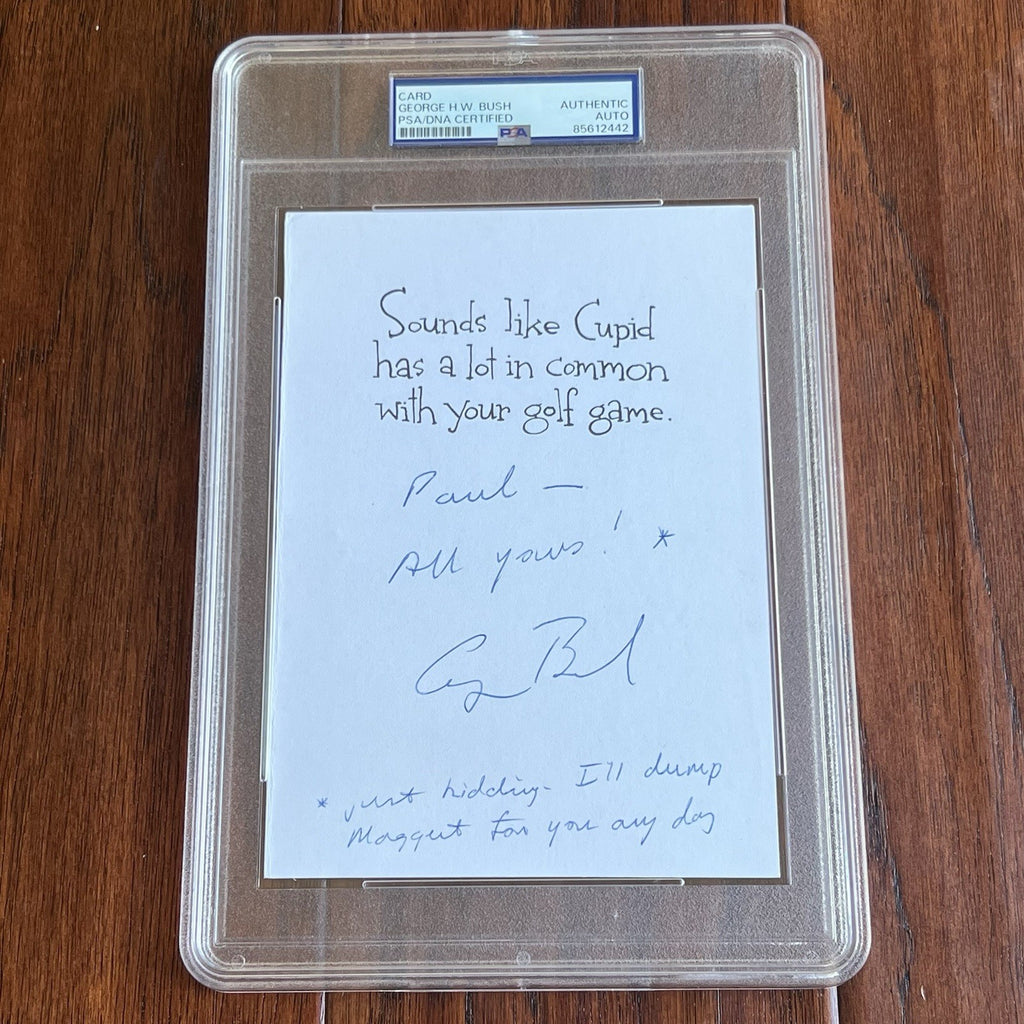 CARD
GEORGE H.W. BUSH
PSA/DNA CERTIFIED
AUTHENTIC
AUTO
85612442
PSA
Sounds like Cupid
has a lot in common
with your golf game.
Paul —
All yours! *
George Bush
* just kidding - I'll dump
for you any day